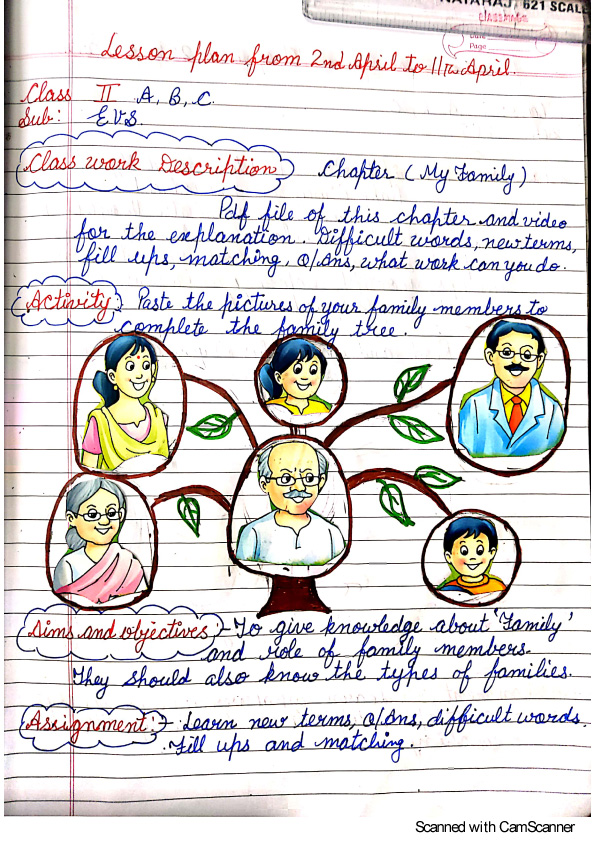 NATARAJ 621 SCALE
classmate
Date
Page
Lesson plan from 2nd April to 11th April.
Class II A, B, C.
Sub: E.V.S.
Class work Description Chapter ( My Family )
Pdf file of this chapter and video
for the explanation. Difficult words, new terms,
fill ups, matching, Q/Ans, what work can you do.
Activity: Paste the pictures of your family members to
complete the family tree.
Aims and objectives :- To give knowledge about 'Family'
and role of family members.
They should also know the types of families.
Assignment :- Learn new terms, Q/Ans, difficult words.
Fill ups and matching.
Scanned with CamScanner